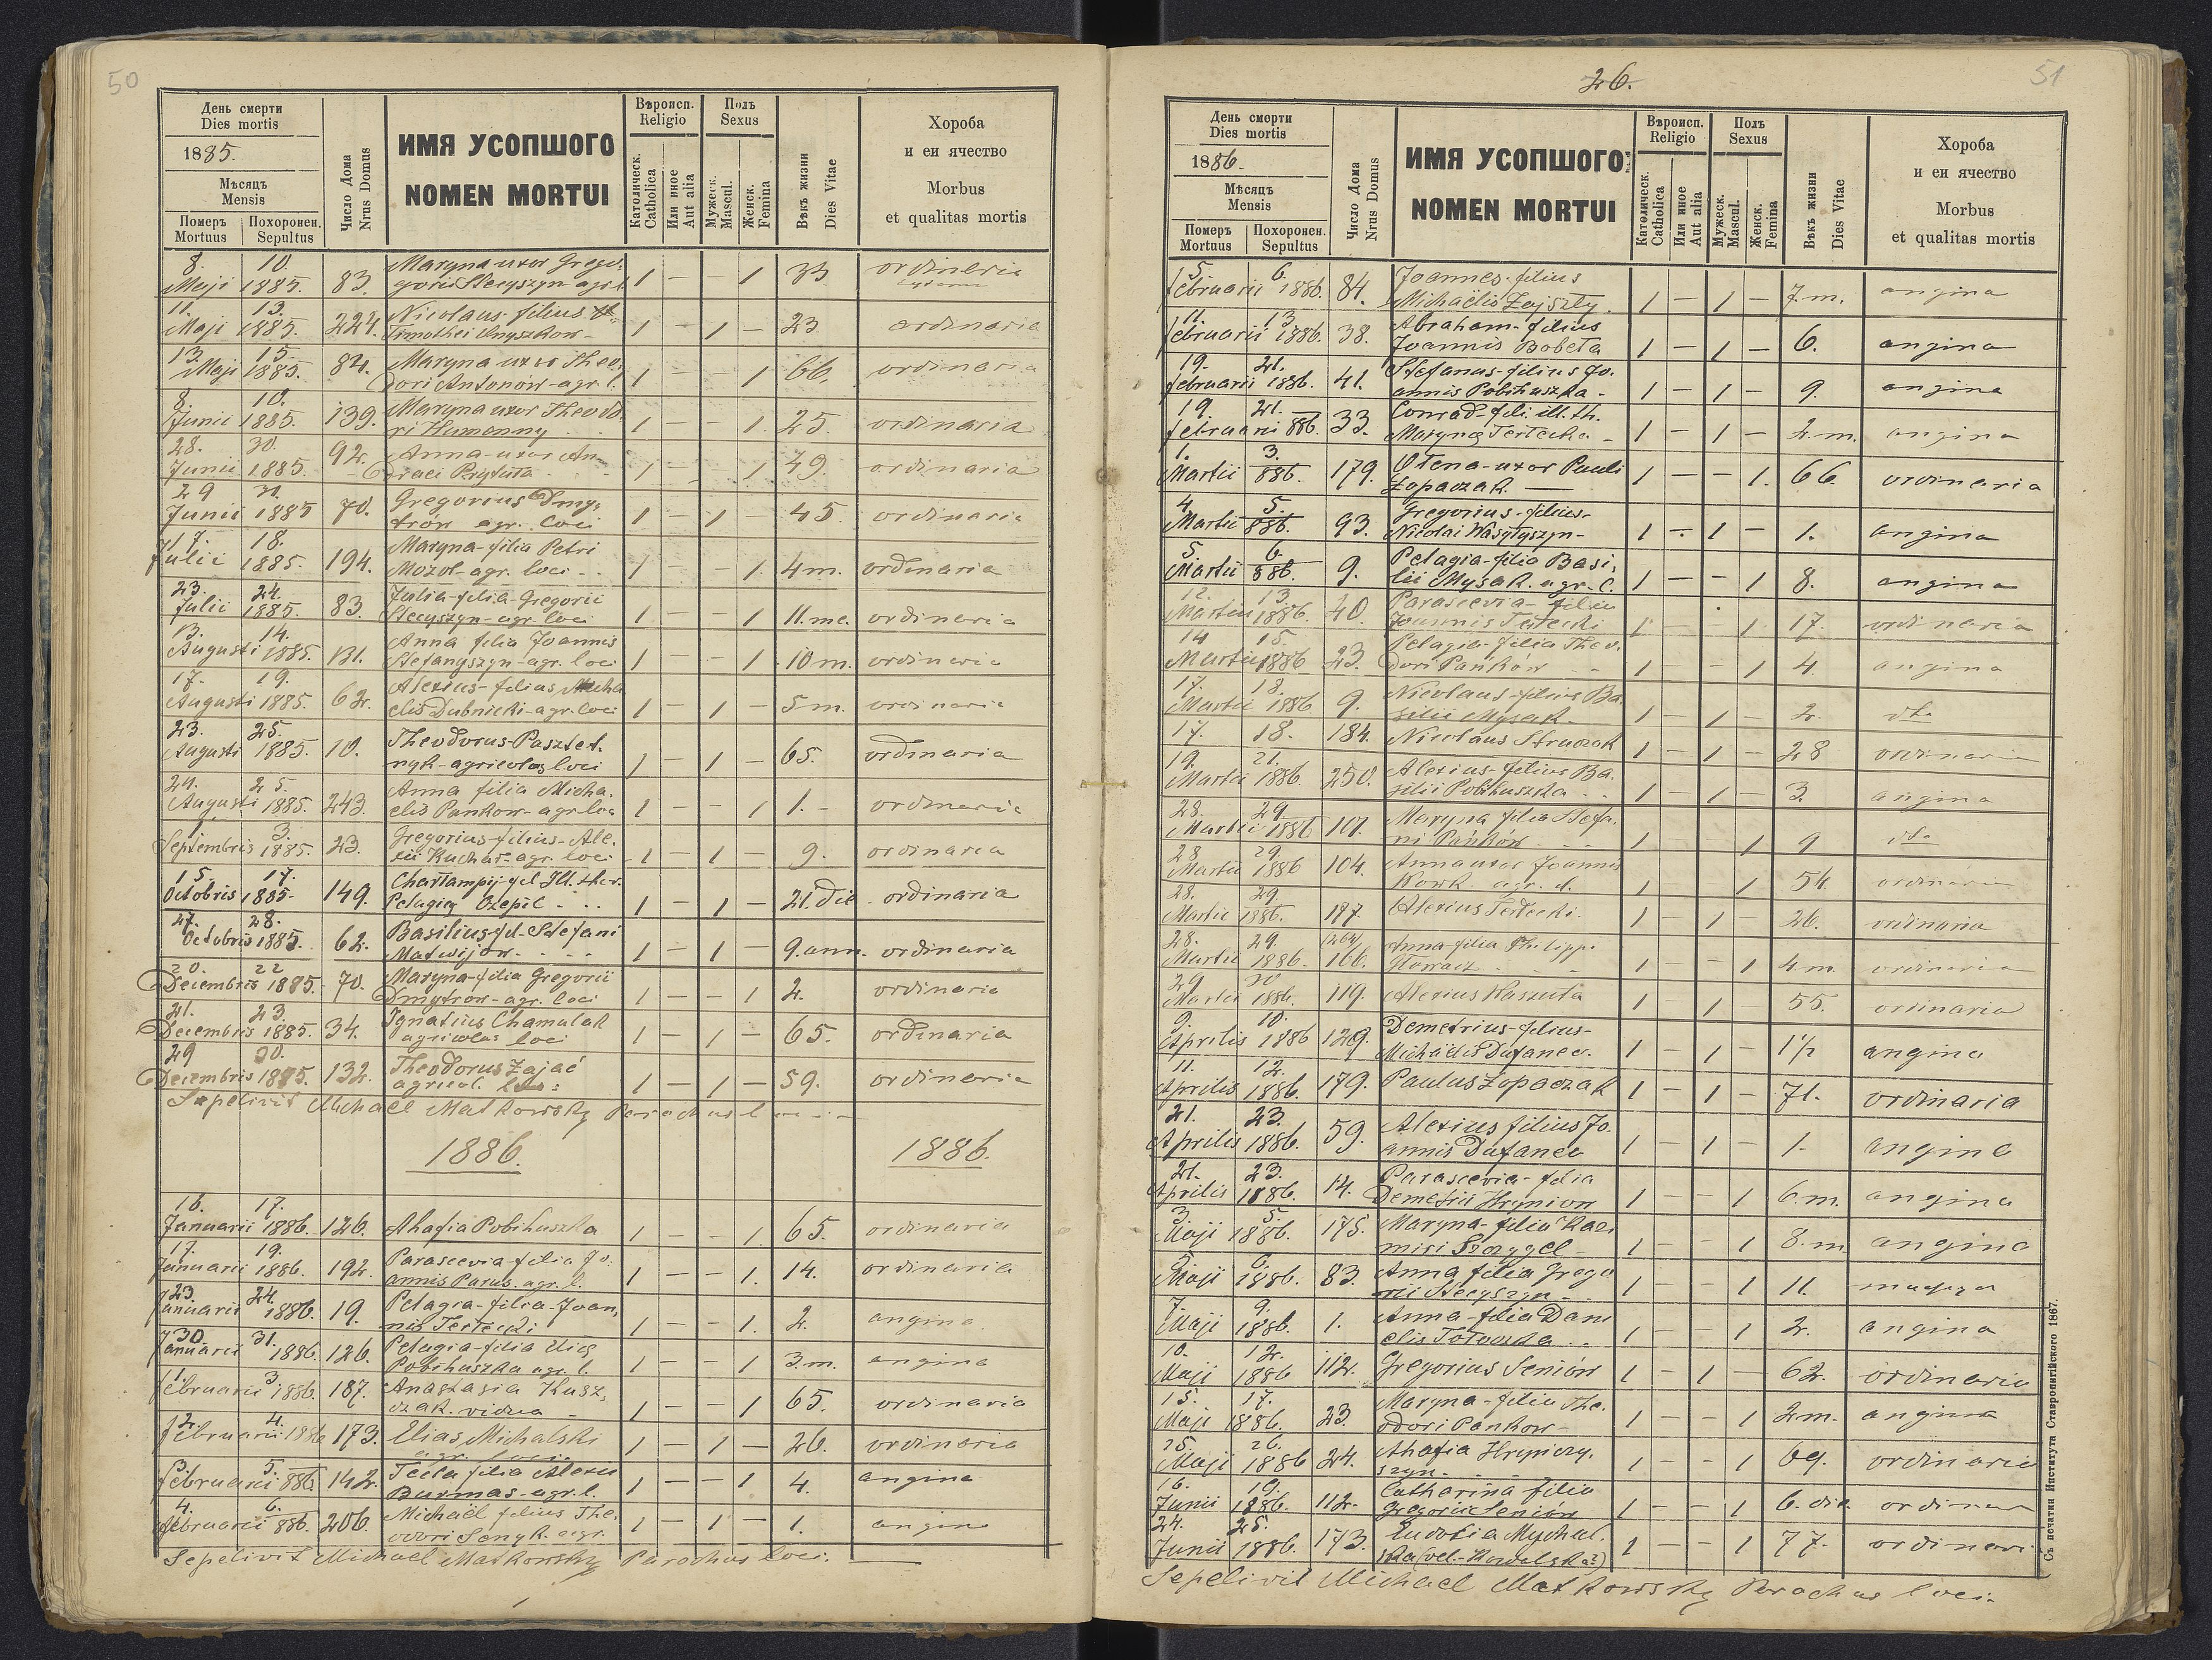 50
День смерти
Dies mortis
1885.
Мѣсяцъ
Mensis
Померъ Похоронен.
Mortuus Sepultus
Число Дома
Nrus Domus
ИМЯ УСОПШОГО
NOMEN MORTUI
Вѣроисп.
Religio
Католическ.
Catholica
Или иное
Aut alia
Полъ
Sexus
Мужеск.
Mascul.
Женск.
Femina
Вѣкъ жизни
Dies Vitae
Хороба
и еи ячество
Morbus
et qualitas mortis
8. 10. Maryna uxor Grego-
Maji 1885. 83. gorii Stecyszyn agr. l. 1 – – 1 33 ordinaria
11. 13. Nicolaus filius
Maji 1885. 224. Timothei Onyszkow – 1 – 1 – 23 ordinaria
13. 15. Maryna uxor Theo-
Maji 1885. 84. dori Antonow agr. l. 1 – – 1 66. ordinaria
8. 10. Maryna uxor Theodo
Junii 1885. 139. ri Humenny 1 – – 1. 25. ordinaria
28. 30. Anna uxor An-
Junii 1885. 92. draei Prytuła 1 – – 1 49. ordinaria
29 31. Gregorius Dmy-
Junii 1885 70. trów agr. loci 1 – 1 – 45. ordinaria
17. 18. Maryna-filia Petri
Julii 1885. 194. Mozol-agr. loci – 1 – – 1. 4 m. ordinaria
23. 24. Julia-filia-Gregorii
Julii 1885. 83. Stecyszyn-agr. loci 1 – – 1 11. me. ordinaria
13. 14. Anna filia Joannis
Augusti 1885. 131. Stefanyszyn-agr. loci 1 – – 1 10 m. ordinaria
17. 19. Alexius-filius Micha
Augusti 1885. 62. elis Dubnicki-agr. loci 1 – 1 – 5 m. ordinaria
23. 25. Theodorus-Pasztet.
Augusti 1885. 10. nyk-agricola loci 1 – 1 – 65. ordinaria
24. 25. Anna filia Micha.
Augusti 1885. 243. elis Pankow-agr loci 1 – – 1 1. – ordinaria
1. 3. Gregorius-filius-Ale.
Septembris 1885. 23. xii Kuchar-agr. loci 1 – 1 – 9. ordinaria
15. 17. Charłampij-fil Ill. ther.
Octobris 1885. 149. Pelagia Ozepil – 1 – 1 – 21. die ordinaria
27. 28. Basilius-fil-Stefani
Octobris 1885. 62. Matwijów 1 – 1 – 9. ann. ordinaria
20. 22 Maryna-filia Gregorii
Decembris 1885. 70. Dmytrow-agr. loci 1 – – 1 2. ordinaria
21. 23. Ignatius Chamulak
Decembris 1885. 34. agricola loci 1 – 1 – 65. ordinaria
29 30. Theodorus Zając
Decembris 1885. 132. agricol. loci 1 – 1 – 59. ordinaria
Sepelivit Michael Matkowsky Parochus loci
1886. 1886.
16. 17.
Januarii 1886. 126. Ahafia Pobihuszka 1 – – 1. 65. ordinaria
17. 19. Parascevia-filia Jo.
Januarii 1886. 192. annis Parus. agr. l. 1 – – 1. 14. ordinaria
23. 24. Pelagia-filia-Joan,
Januarii 1886. 19. nis Terlecki 1 – – 1. 2. angina
30. 31. Pelagia-filia Eliae
Januarii 1886. 126. Pobihuszka agr. l. 1 – – 1 3. m. angina
1. 3. Anastasia Kusz,
februarii 1886. 187. czak. vidua – 1 – – 1 65. ordinaria
2. 4. Elias Michalski
februarii 1886 173. agr. loci. 1 – 1 – 26. ordinaria
3. 5. Tecla filia Alexii
februarii 886 142. Burmas-agr. l. 1 – – 1 4. angina
4. 6. Michaël filius The.
februarii 886. 206. odori Senyk agr. 1 – 1 – 1. angina
Sepelivit Michael Matkowsky Parochus loci.
26.
51
День смерти
Dies mortis
1886.
Мѣсяцъ
Mensis
Померъ Похоронен.
Mortuus Sepultus
Число Дома
Nrus Domus
ИМЯ УСОПШОГО
NOMEN MORTUI
Вѣроисп.
Religio
Католическ.
Catholica
Или иное
Aut alia
Полъ
Sexus
Мужеск.
Mascul.
Женск.
Femina
Вѣкъ жизни
Dies Vitae
Хороба
и еи ячество
Morbus
et qualitas mortis
5. 6. Joannes-filius
februarii 1886. 84. Michaelis Zajszły. 1 – 1 – 7. m. angina
11. 13. Abraham-filius
februarii 1886. 38. Joannis Bobeła 1 – 1 – 6. angina
19. 21. Stefanus-filius Jo.
februarii 1886. 41. annis Pobihuszka – 1 – 1 – 9. angina
19. 21. Conrad-fili. ill. th.
februarii 886. 33. Maryna Terlecka – 1 – 1 – 2. m. angina
1. 3. Olena-uxor Pauli
Martii 886. 179. Łopaczak 1 – – 1. 66. ordinaria
4. 5. Gregorius-filius-
Martii 886. 93. Nicolai Wasyłyszyn- 1 – 1 – 1. angina
5. 6. Pelagia-filia Basi,
Martii 886. 9. lii Mysak. agr. l. 1 – – 1 8. angina
12. 13. Parascevia-filia
Martii 1886. 40. Joannis Terlecki 1 – – 1 17. ordinaria
14 15. Pelagia-filia Theo.
Martii 1886 23. dori Pańków 1 – – 1 4. angina
17. 18. Nicolaus-filius Ba.
Martii 1886. 9. silii Mysak- 1 – 1 – 2. dto
17. 18. 184. Nicolaus Struczak 1 – 1 – 28 ordinaria
19. 21. Alexius-filius Ba.
Martii 1886. 250. silii Pobihuszka 1 – 1 – 3. angina
28. 29. Maryna filia Stefa.
Martii 1886 101. ni Pańków 1 – – 1 9 dto
28 29. Anna uxor Joannis
Martii 1886 104. Wowk agr. d. 1 – – 1 54. ordinaria
28. 29.
Martii 1886. 187. Alexius Terlecki. 1 – 1 26. ordinaria
28. 29. Anna-filia Philippi
Martii 1886. 166. Głowacz 1 – – 1 4. m. ordinaria
29 30
Martii 1886. 119. Alexius Waszuta 1 – 1 55. ordinaria
9. 10. Demetrius-filius-
Aprilis 1886 129. Michaelis Dufanec. 1 – 1 – 1½ angina
11. 12.
Aprilis 1886. 179. Paulus Łopaczak 1 – 1 – 71. ordinaria
21. 23. Alexius filius Jo.
Aprilis 1886. 59. annis Dufanec 1 – 1 – 1. angina
21. 23. Parascevia-filia
Aprilis 1886. 14. Demetrii Hryniow 1 – – 1 6. m. angina
3. 5. Maryna-filia Kazi
Maji 1886. 175. miri Szczygel 1 – – 1 8. m angina
5 6. Anna filia Grego
Maji 1886. 83. rii Stecyszyn – 1 – – 1 11.
7. 9. Anna-filia Dani
Maji 1886. 1. elis Tołoczka 1 – – 1 2. angina
10. 12.
Maji 1886 112. Gregorius Seniów 1 – 1 – 62. ordinaria
15. 17. Maryna-filia The.
Maji 1886. 23. odori Pankow- 1 – – 1 2m. angina
25. 26. Ahafia Hryńczy.
Maji 1886 24. szyn. 1 – – 1 69. ordinaria
16. 19. Catharina filia
Junii 1886. 112. Gregorii Seniów 1 – – 1 6. die ordinar
24. 25. Eudoxia Mychal.
Junii 1886. 173. ska (vel.-Kowalska?) 1 – – 1 77. ordinari
Sepelivit Michael Matkowsky Parochus loci.
Съ печатни Института Ставропигійского 1867.